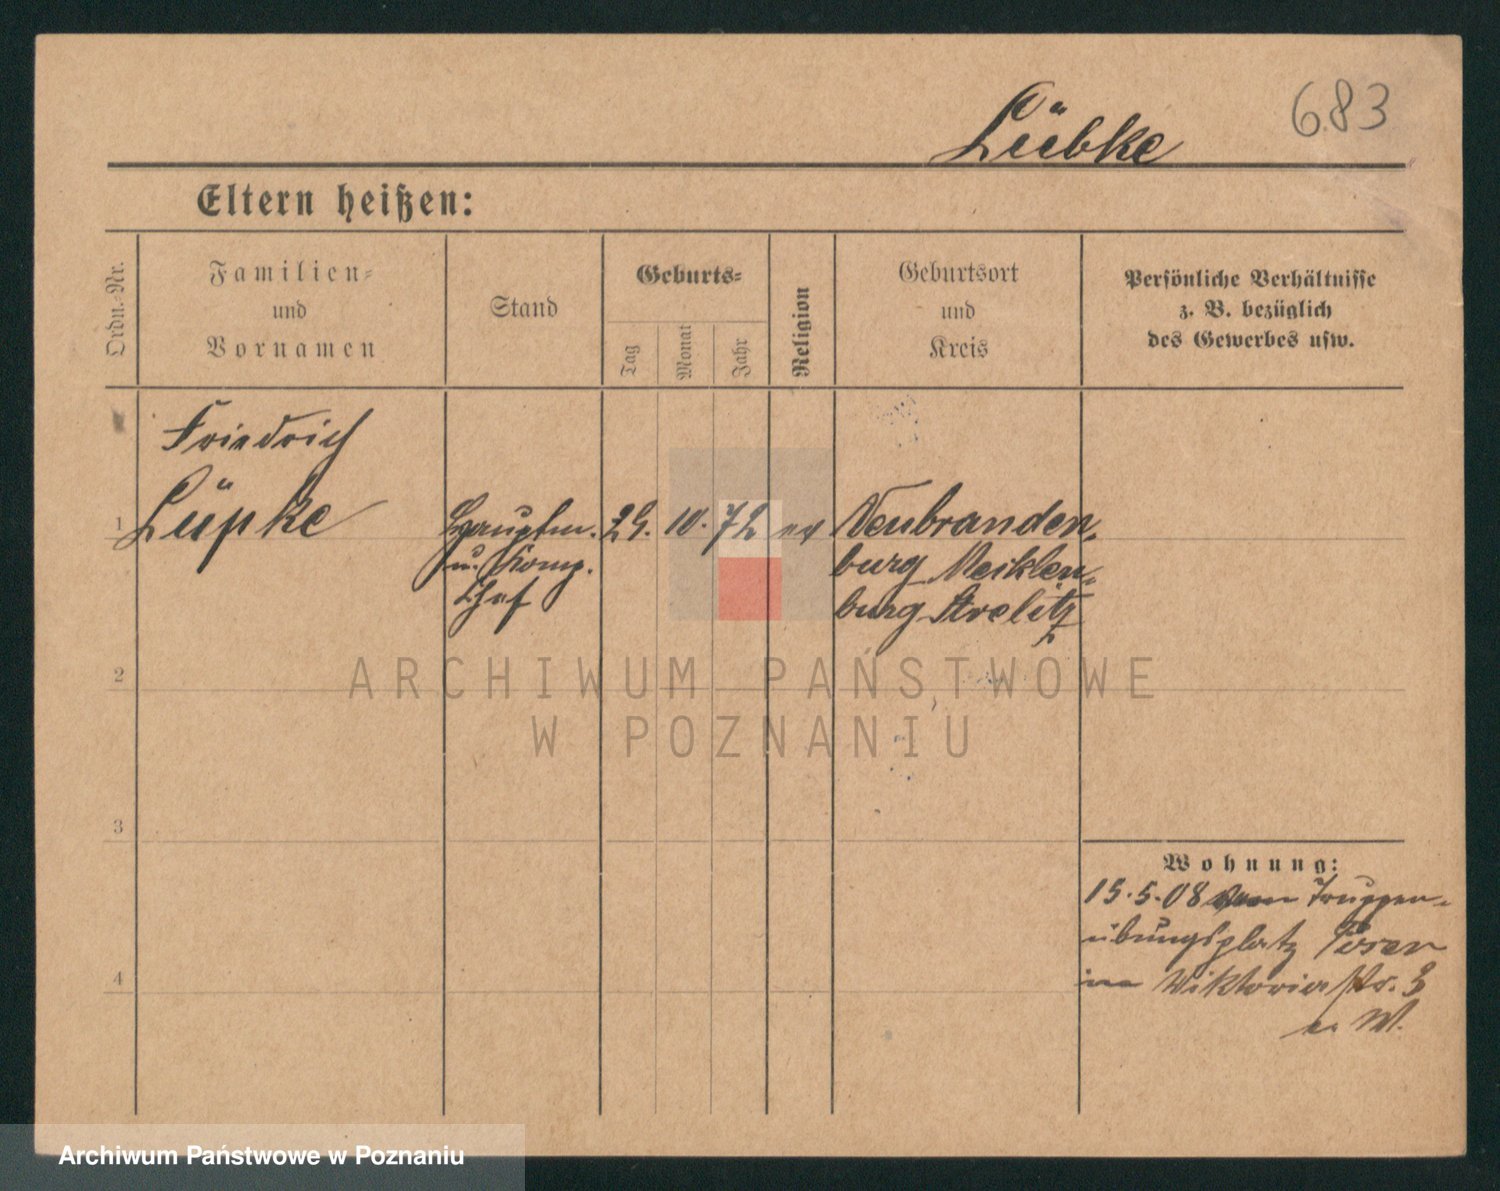 683
Lübke
Eltern heißen:
Ordn.-Nr.
Familien-
und
Vornamen
Stand
Geburts-
Tag
Monat
Jahr
Religion
Geburtsort
und
Kreis
Persönliche Verhältnisse
z. B. bezüglich
des Gewerbes usw.
1
Friedrich
Lüpke
Hauptm.
u. Komp.
Chef
29. 10. 72
ev
Neubranden-
burg Mecklen-
burg Strelitz
2
3
4
Wohnung:
15.5.08 vom Truppen-
übungsplatz Posen
in Viktoriastr. 3
ARCHIWUM PAŃSTWOWE
W POZNANIU
Archiwum Państwowe w Poznaniu